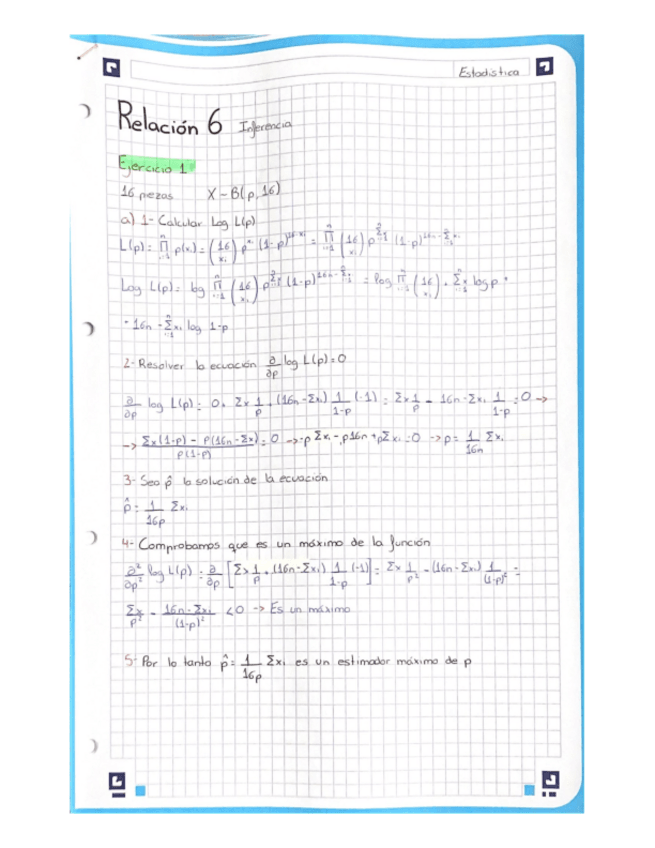 Estadística
Relación 6 Inferencia
Ejercicio 1
16 piezas X ~ B(p, 16)
a) 1- Calcular Log L(p)
L(p) = ∏ p(xᵢ) = (16 xᵢ) pˣⁱ (1-p)¹⁶⁻ˣⁱ = ∏ (16 xᵢ) p^Σxᵢ (1-p)^16n-Σxᵢ
Log L(p) = log ∏ (16 xᵢ) · p^Σxᵢ (1-p)^16n-Σxᵢ = log ∏ (16 xᵢ) + Σxᵢ log p +
+ 16n - Σxᵢ log 1-p
2- Resolver la ecuación ∂/∂p log L(p) = 0
∂/∂p log L(p) = 0 + Σx 1/p + (16n-Σxᵢ) 1/1-p (-1) = Σx 1/p - 16n-Σxᵢ 1/1-p = 0 ->
-> Σx(1-p) - p(16n-Σx)/p(1-p) = 0 -> -p Σxᵢ - p16n + pΣxᵢ = 0 -> p = 1/16n Σxᵢ
3- Sea p̂ la solución de la ecuación
p̂ = 1/16p Σxᵢ
4- Comprobamos que es un máximo de la función
∂²/∂p² log L(p) = ∂/∂p [Σx 1/p + (16n-Σxᵢ) 1/1-p (-1)] = Σx 1/p² - (16n-Σxᵢ) 1/(1-p)² =
Σx/p² - 16n-Σxᵢ/(1-p)² <0 -> Es un máximo
5- Por lo tanto p̂ = 1/16p Σxᵢ es un estimador máximo de p